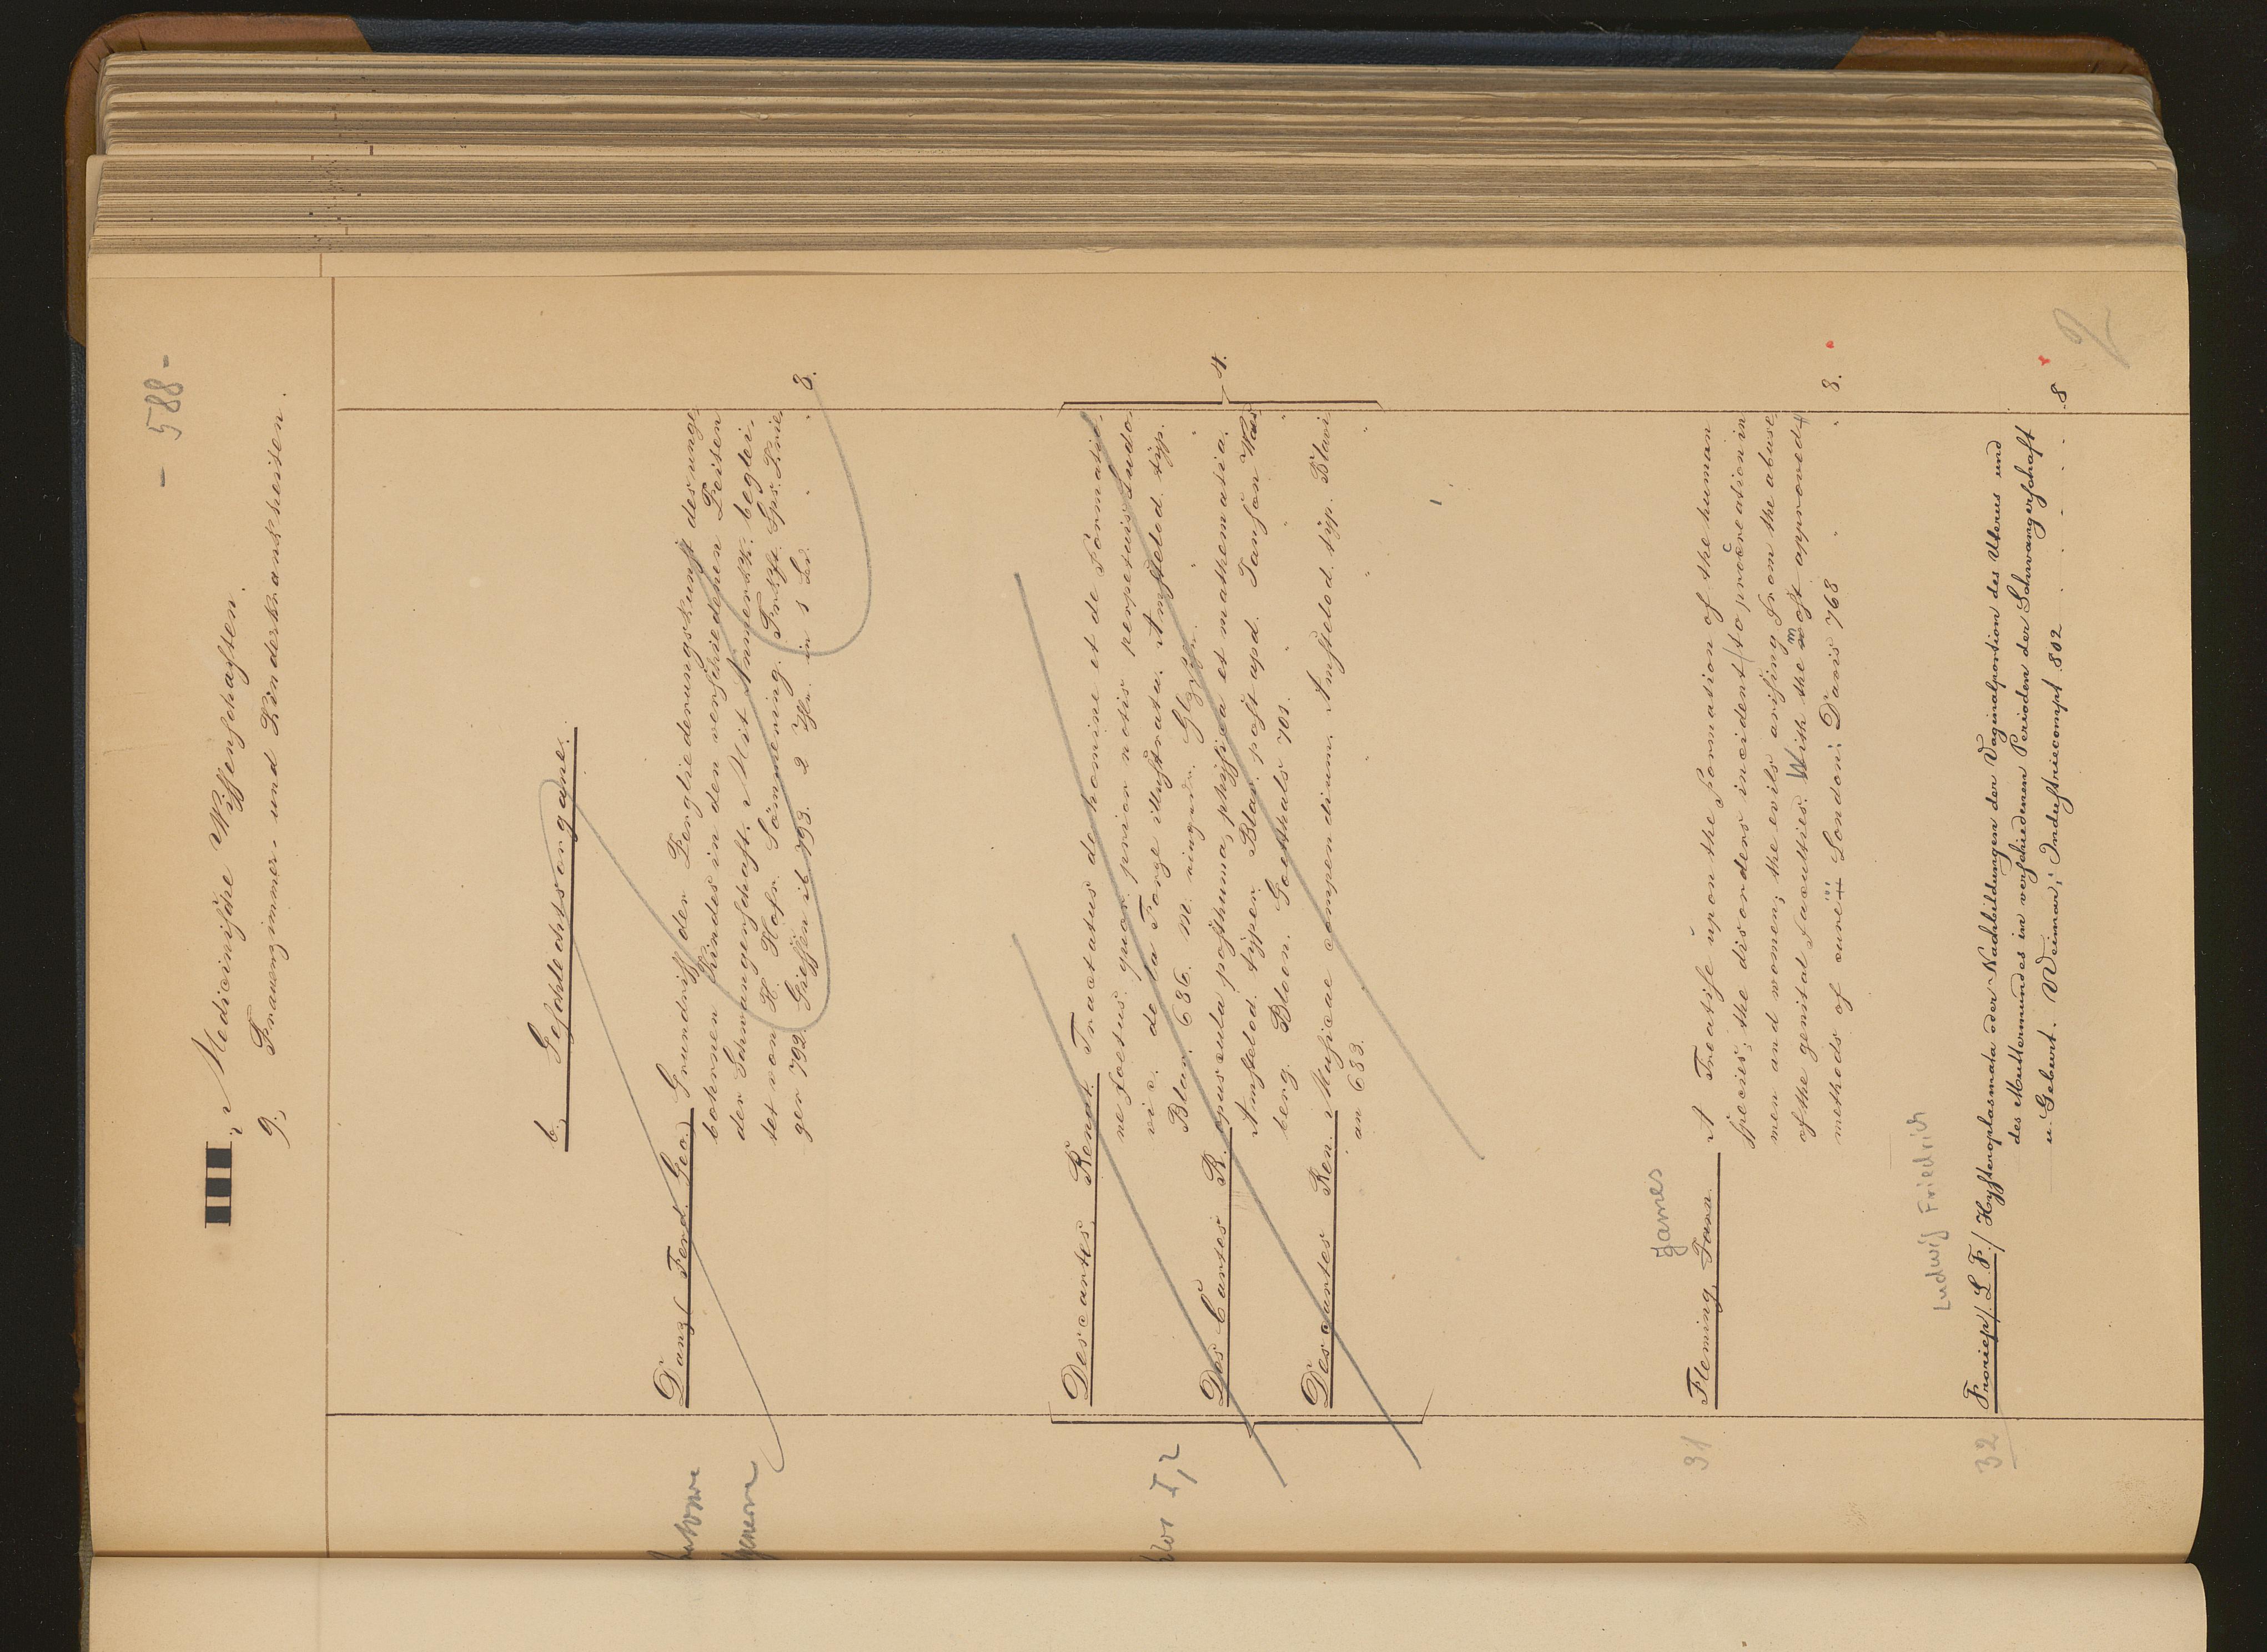 - 588 -
„Medicinische Wissenschaften.
9., Frauenzimmer- und Kinderkrankheiten.
b., Geschlechtsorgane.
Danz (Ferd. Geo.) Grundriß der Zergliederungskunst des unge-
bohrnen Kindes in den verschiedenen Zeiten
der Schwangerschaft. Mit Anmerkk. beglei-
tet von H. Hofr. Sömmering. Frkft. Lps. Krie-
ger 792. Gießen ib 793. 2 Thle. in 1 Bd. 8.
Descartes, Renat. Tractatus de homine et de formatio-
ne foetus. quor. prior notis perpetuis Ludo-
vic. de la Forge illustratu. Amsteled. typ.
Blav. 686. M. eingedr. Glzsn.
Des Cartes R. opuscula posthuma, physica et mathematica.
Amstelod. typ. Blav. post apd. Janson Waes
berg. Bloon. Goethals 701.
Descartes Ren. Musicae compendium. Amstelod. typ. Blavi
an 683. 4.
I, 2
James
31 Fleming, Jam. A Treatise upon the formation of the human
species; the disorders incident (to procreation in
men and women; the evils arising from the abuse
of the genital faculties. With the most approved
methods of cure London: Davis 768 8.
Ludwig Friedrich
32 Froriep/. L. F./ Hysteroplasmata oder Nachbildungen der Vaginalportion des Uterus und
des Muttermundes in verschiedenen Perioden der Schwangerschaft
u. Geburt. Weimar; Industriecompt. 802 8